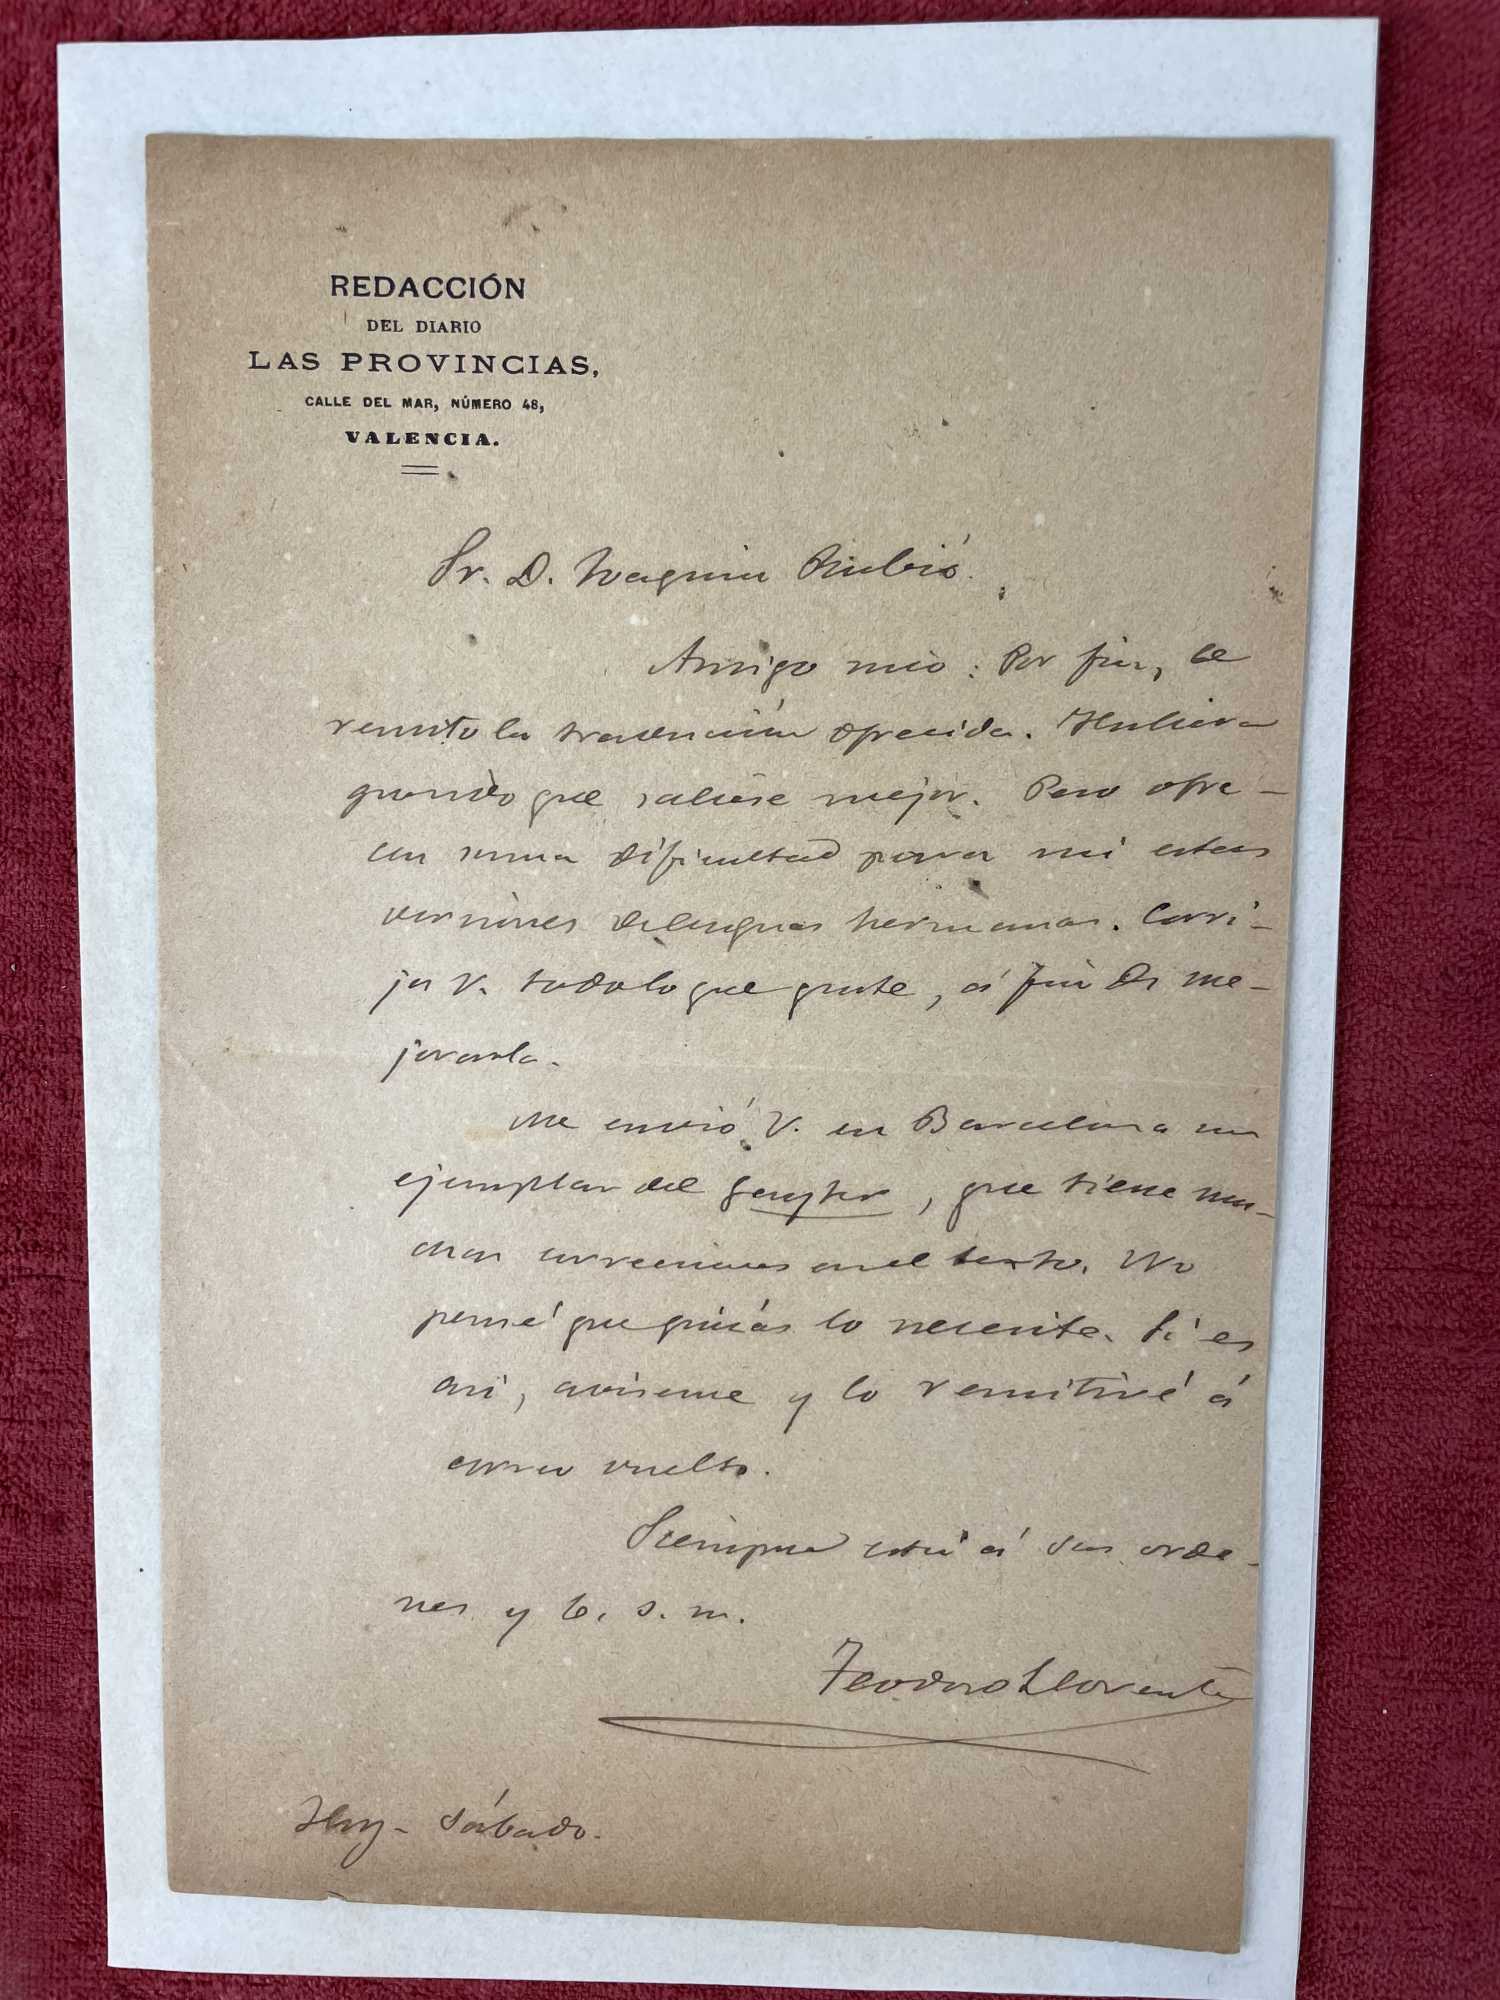 REDACCIÓN
DEL DIARIO
LAS PROVINCIAS,
CALLE DEL MAR, NÚMERO 48,
VALENCIA.
Sr. D. Joaquin Rubió.
Amigo mio: Por fin, le
remito la traducción ofrecida. Hubiera
querido que saliese mejor. Pero ofre-
cen suma dificultad para mi estas
versiones de lenguas hermanas. Corri-
ja V. todo lo que guste, á fin de me-
jorarla.
Me envió V. en Barcelona un
ejemplar del Gayter, que tiene mu-
chas correcciones en el texto. No
pensé que quizás lo necesite. Si es
asi, aviseme y lo remitiré á
correo vuelto.
Siempre está á sus orde-
nes y b. s. m.
Teodoro Llorente
Hoy - Sábado.